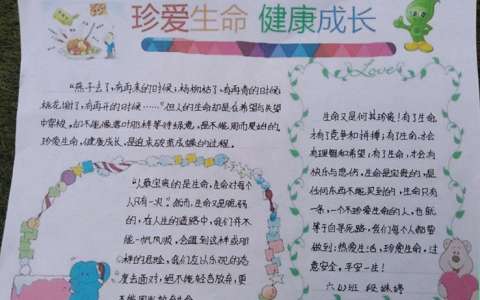 珍爱生命 健康成长
“燕子去了,有再来的时候;杨柳枯了,有再青的时候;
桃花谢了,有再开的时候……”但人的生命却是在希望与失望
中穿梭,却不能像落叶那样等待绿意,是不能周而复始的,
珍爱生命,健康成长,是追求破茧成蝶的过程。
“人最宝贵的是生命,生命对每个
人只有一次。”然而,生命又是脆弱
的,在人生的道路中,我们并不
能一帆风顺,会遇到这样或那
样的危险,我们应以乐观的态
度去面对,绝不能轻言放弃,更
Love
生命又是何其珍贵!有了生命,
才有了竞争和拼搏;有了生命,才会
有理想和希望;有了生命,才会有
快乐与悲伤,生命是宝贵的,是
任何东西不能买到的,生命只有
一条,一个不珍爱生命的人,也就
等于白等死路,我们每个人都要
做到:热爱生活,珍爱生命,注
意安全,平安一生!
六(4)班 段姝婷